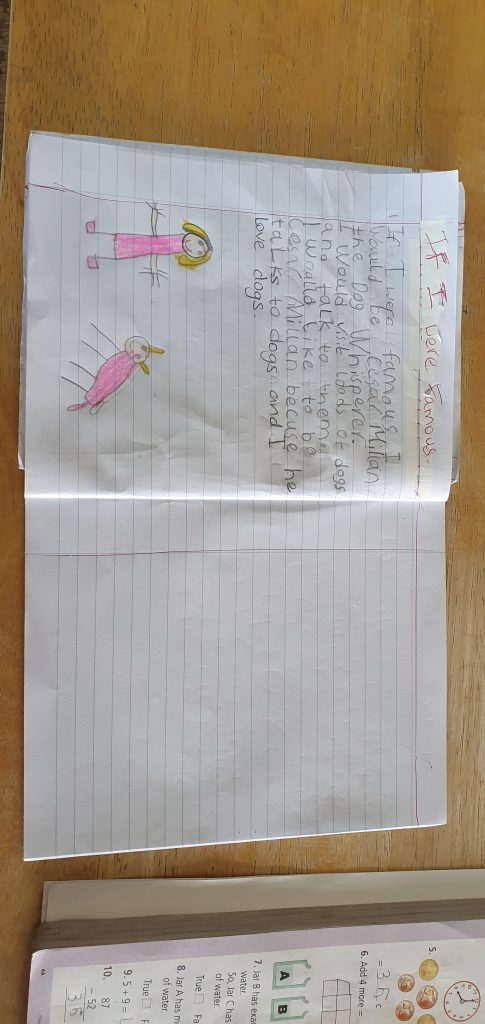 If I were famous.
If I were famous I
would be Cesar Millan
the Dog Whisperer.
I would visit loads of dogs
and talk to them.
I would like to be
Cesar Millan becuse he
talks to dogs and I
love dogs.
5.
= 35c
6. Add 4 more =
7. Jar B has exa
water.
So, Jar C has
of water.
A B
8. Jar A has m
of water.
True Fa
9. 5 + 9 = 1
True F
10. 87
- 52
35
66